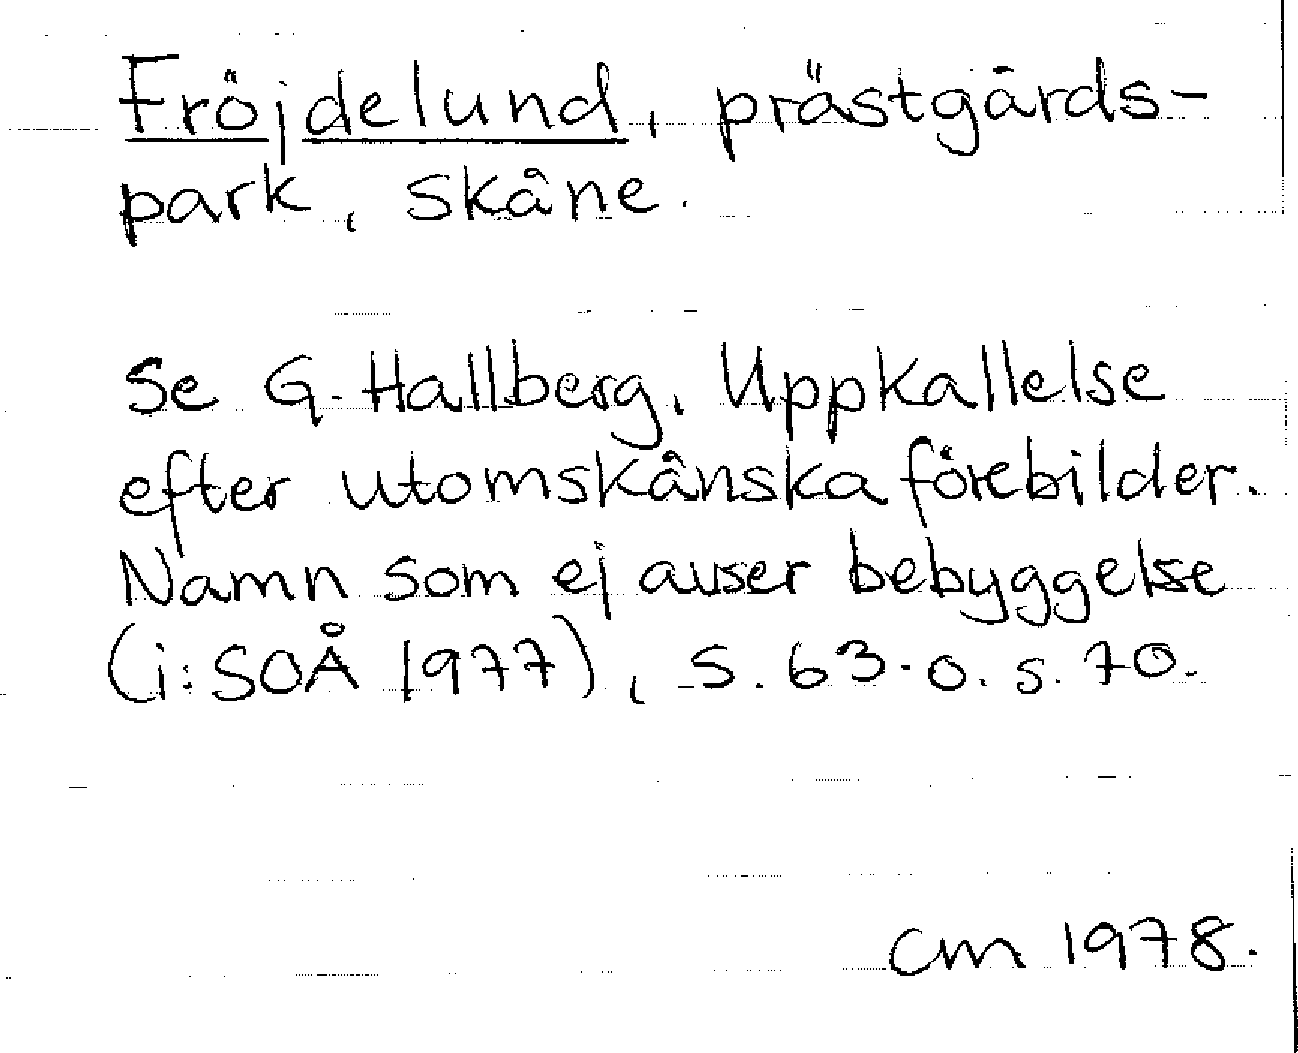 Fröjdelund, prästgårds-
park, Skåne.
Se G. Hallberg, Uppkallelse
efter utomskånska förebilder.
Namn som ej avser bebyggelse
(i: SOÅ 1977), s. 63 o. s. 70.
CM 1978.